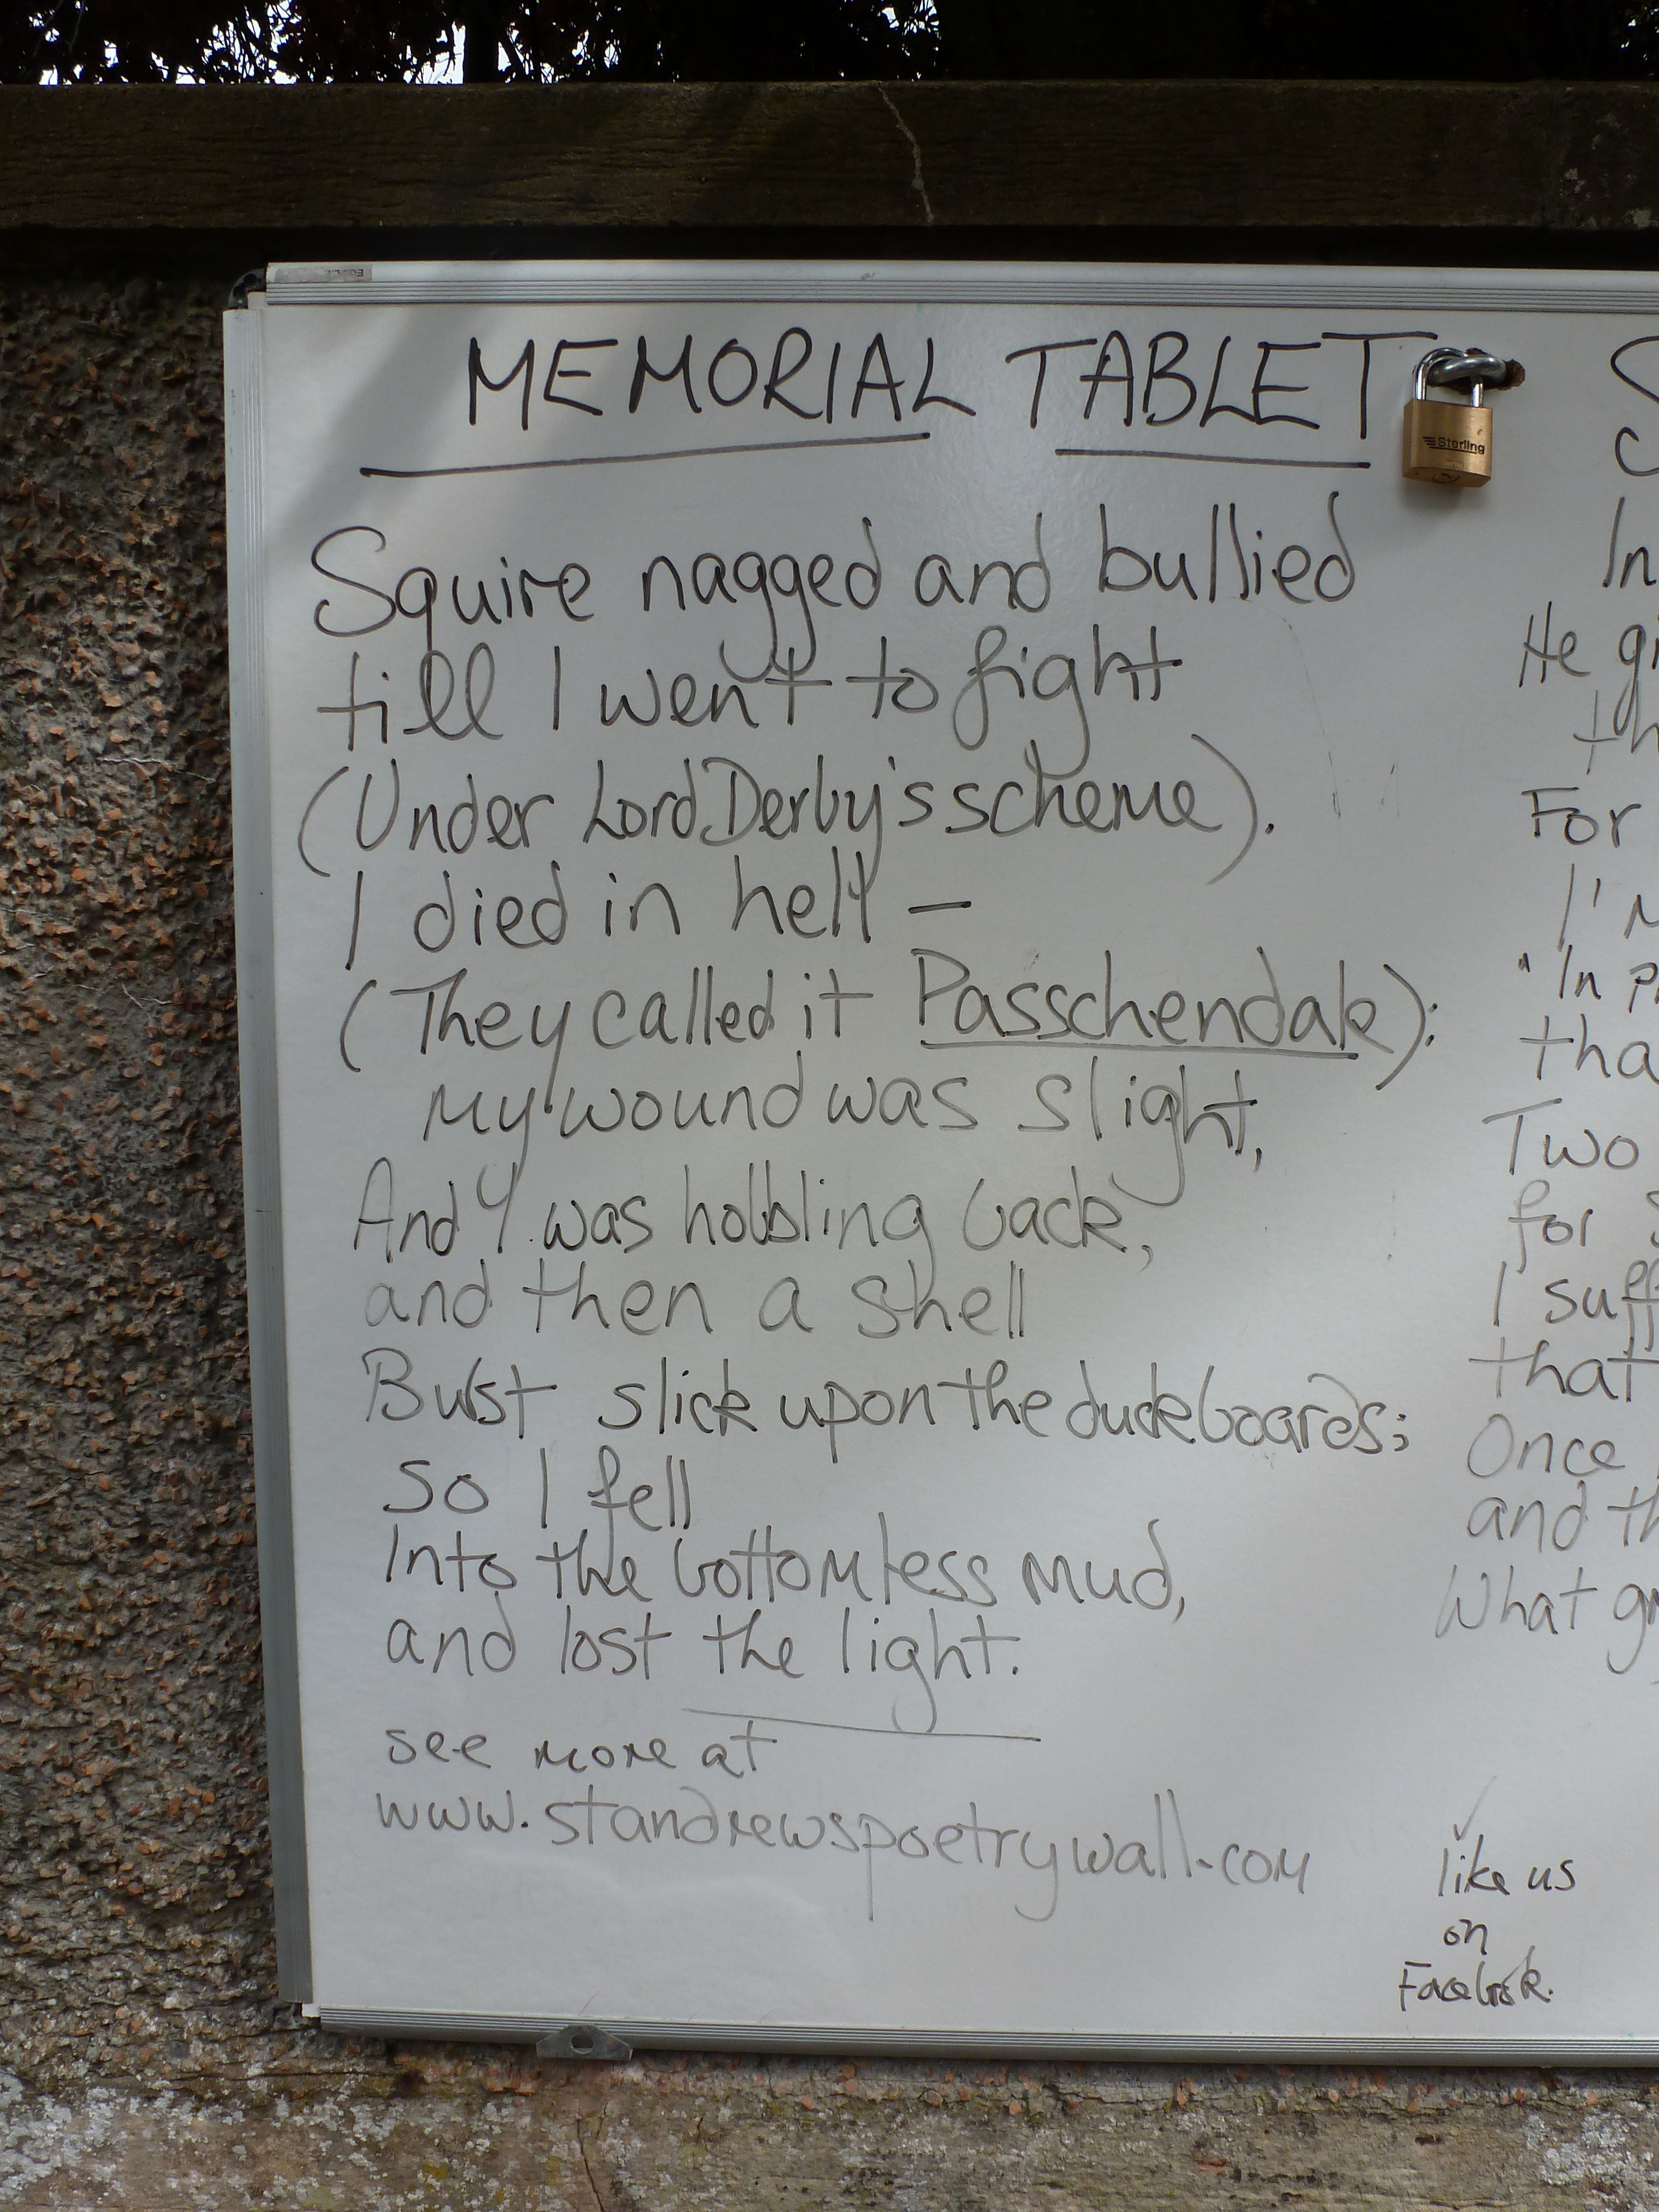 MEMORIAL TABLET
Sterling
Squire nagged and bullied
till I went to fight
(Under Lord Derby's scheme).
I died in hell –
(They called it Passchendale):
my wound was slight,
And I was hobbling back,
and then a shell
Burst slick upon the duckboards;
so I fell
Into the bottomless mud,
and lost the light.
see more at
www.standrewspoetrywall.com
In
He
For
I'm
"In
Two
for
I
that
Once
and
What
like us
on
Facebook.